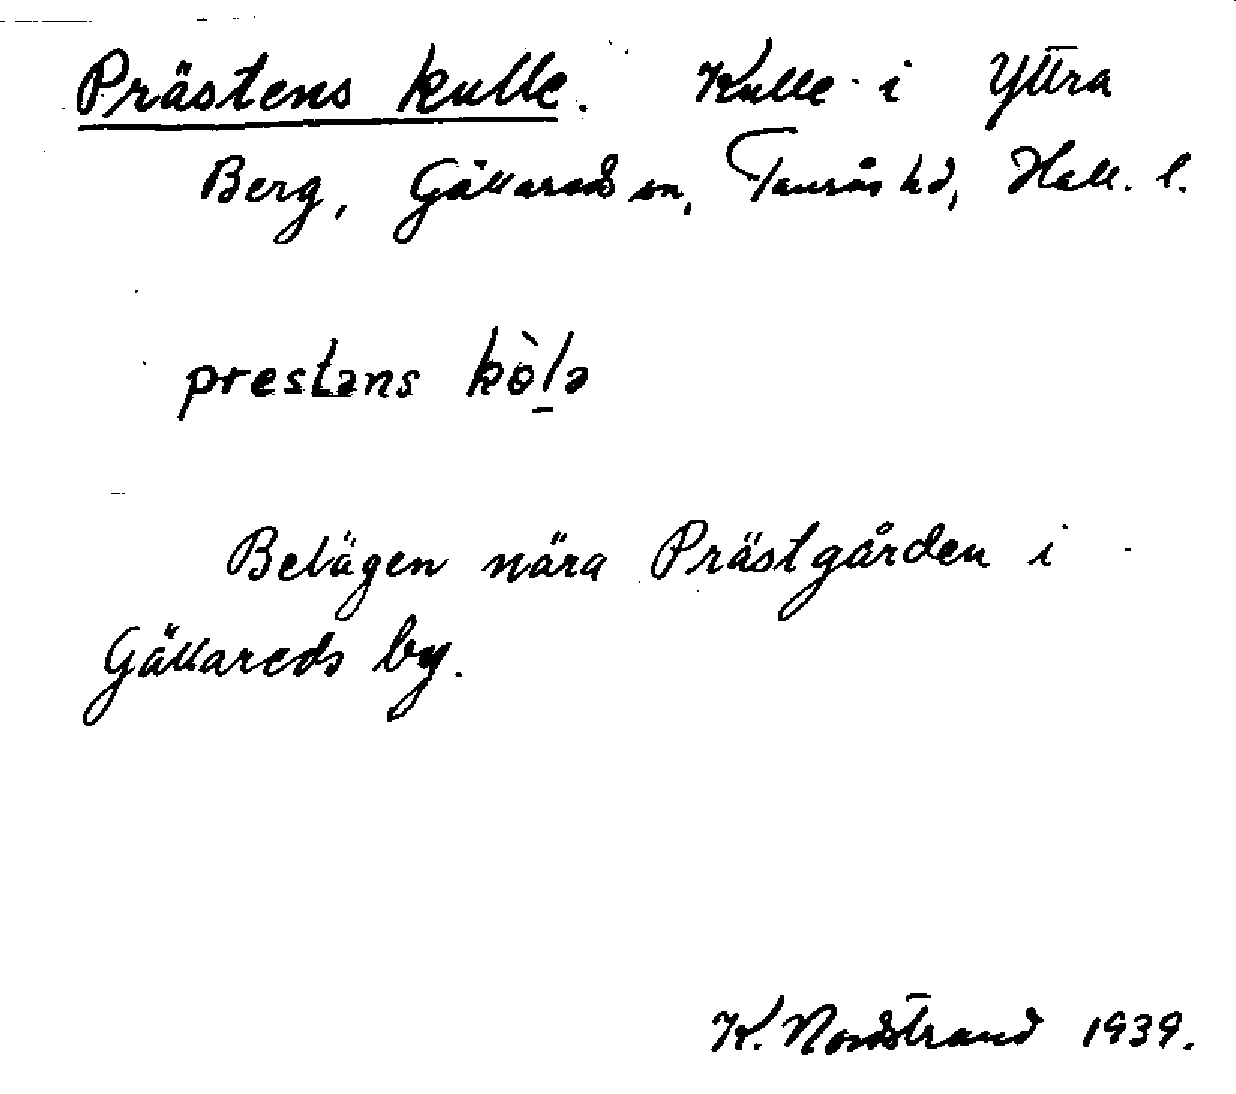 Prästens kulle. Kulle i Yttra
Berg, Gällareds sn, Faurås hd, Hall. l.
prestəns kò̱lə
Belägen nära Prästgården i
Gällareds by.
K. Nordstrand 1939.